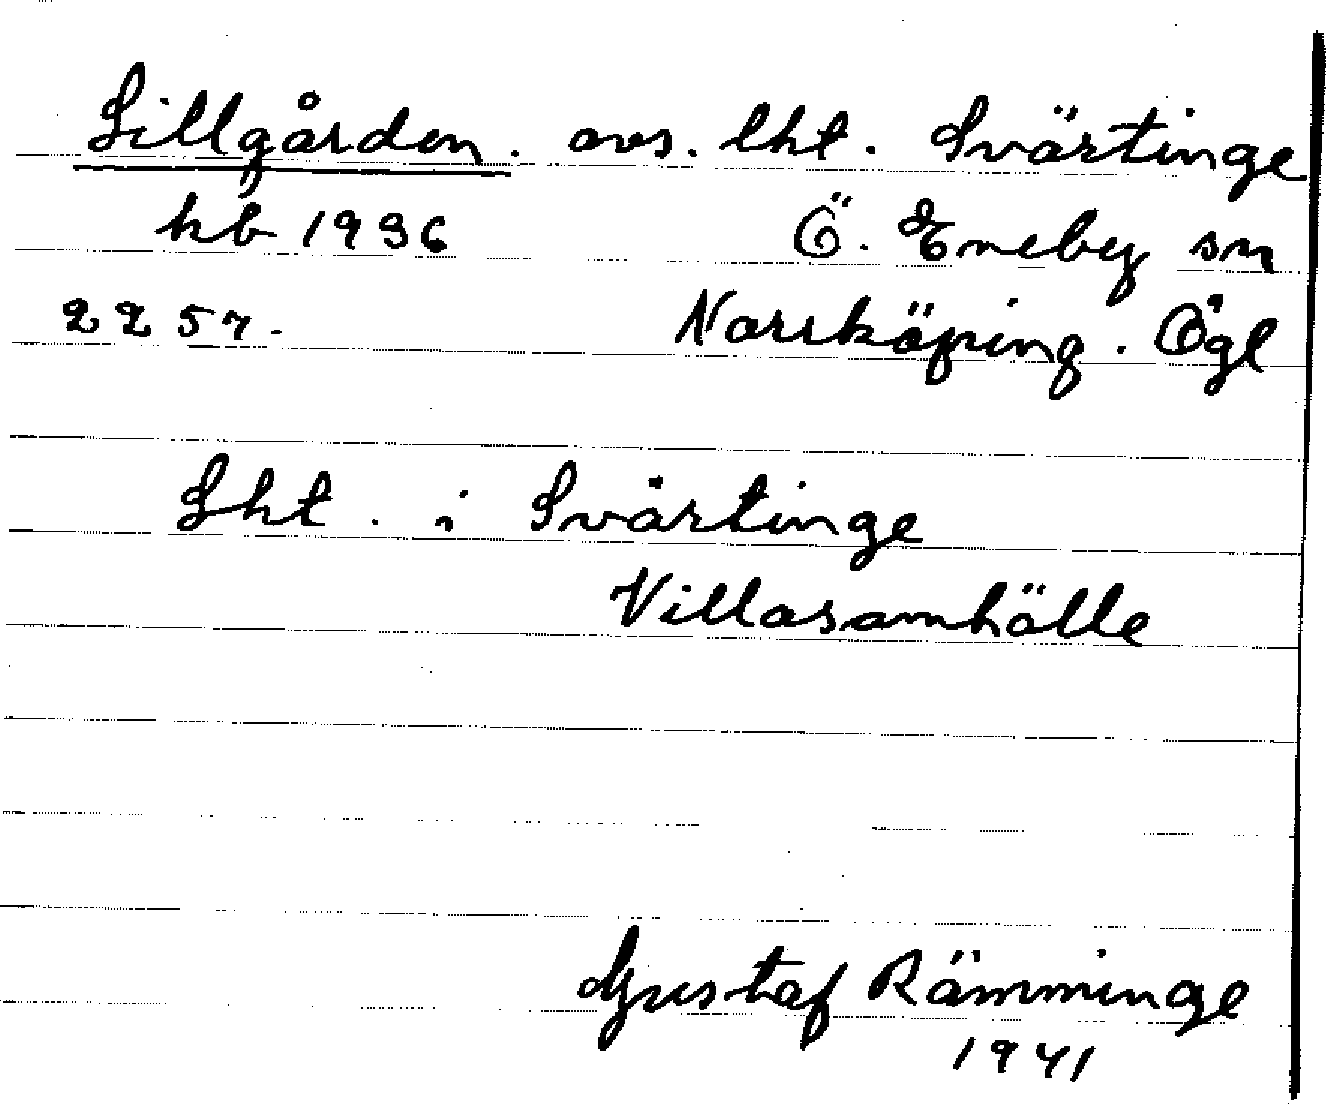 Lillgården. avs. lht. Svärtinge
kb 1936 Ö. Eneby sn
2257. Norrköping. Ögl
Lht. i Svärtinge
Villasamhälle
Gustaf Rämminge
1941